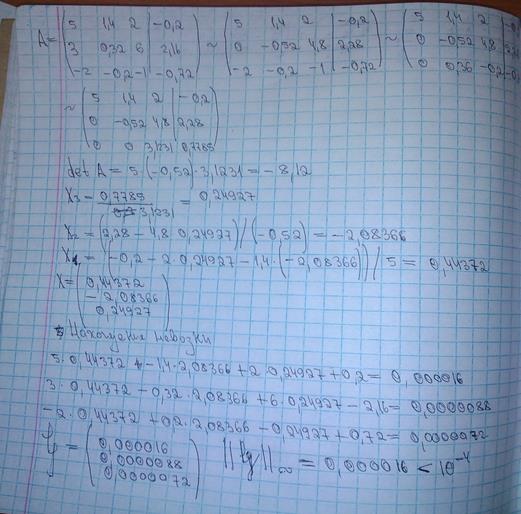 A = ( 5 1,4 2 | -0,2 ) ~ ( 5 1,4 2 | -0,2 ) ~ ( 5 1,4 2
3 0,32 6 | 2,16 0 -0,52 4,8 | 2,28 0 -0,52 4,8
-2 -0,2 -1 | -0,72 -2 -0,2 -1 | -0,72 0 0,36 -0,2
~ ( 5 1,4 2 | -0,2 )
0 -0,52 4,8 | 2,28
0 0 3,1231 | 0,7785
det A = 5 · (-0,52) · 3,1231 = -8,12
X3 = 0,7785 / 3,1231 = 0,24927
X2 = (2,28 - 4,8 · 0,24927) / (-0,52) = -2,08366
X1 = (-0,2 - 2 · 0,24927 - 1,4 · (-2,08366)) / 5 = 0,44372
X = ( 0,44372
- 2,08366
0,24927 )
Нахождение невязки
5 · 0,44372 - 1,4 · 2,08366 + 2 · 0,24927 + 0,2 = 0,000016
3 · 0,44372 - 0,32 · 2,08366 + 6 · 0,24927 - 2,16 = 0,0000088
-2 · 0,44372 + 0,2 · 2,08366 - 0,24927 + 0,72 = 0,0000072
= ( 0,000016
0,0000088
0,0000072 ) || ||∞ = 0,000016 < 10^-4